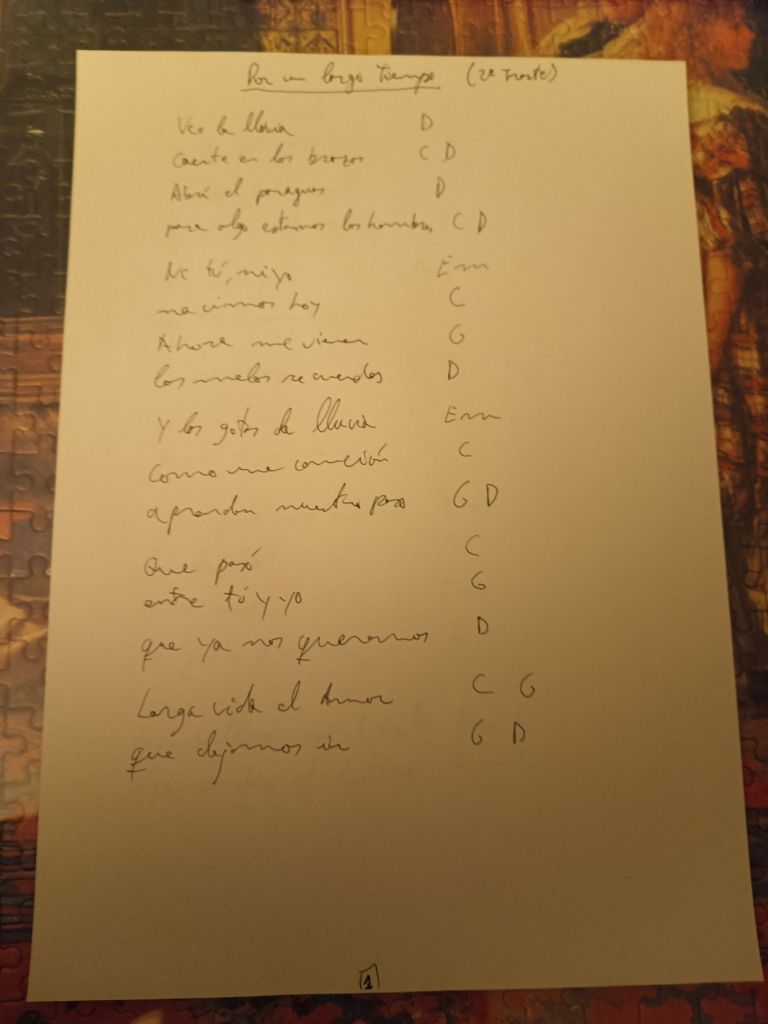 Por un largo tiempo (2ª Parte)
Veo la lluvia D
Caerte en los brazos C D
Abrí el paraguas D
para algo estamos los hombres C D
Ni tú, ni yo Em
nacimos hoy C
Ahora me vienen G
los malos recuerdos D
Y las gotas de lluvia Em
Como una canción C
aprenden nuestro paso G D
Que pasó C
entre tú y yo G
que ya nos queramos D
Larga vida al Amor C G
que dejamos ir G D
1